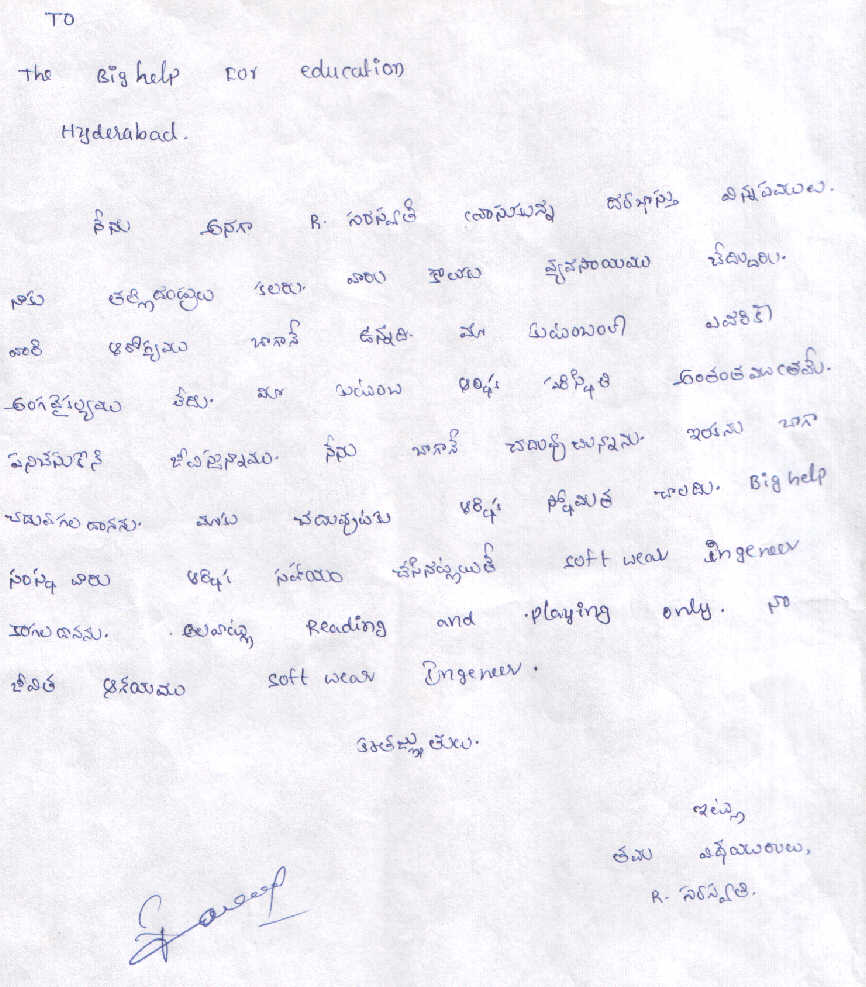 TO
The Big help For education
Hyderabad.
నేను అనగా R. సరస్వతి వ్రాసుకున్న దరఖాస్తు విన్నపములు.
నాకు తల్లిదండ్రులు కలరు. వారు కూలి వ్యవసాయము చేస్తారు.
వారి ఆరోగ్యము బాగానే ఉన్నది. మా కుటుంబంలో ఎవరికీ
అంగవైకల్యము లేదు. మా కుటుంబ ఆర్థిక పరిస్థితి అంతంతమాత్రమే.
పనిచేసుకొని జీవిస్తున్నాము. నేను బాగానే చదువుతున్నాను. ఇకను బాగా
చదువగలదానను. మాకు చదువుటకు ఆర్థిక స్తోమత చాలదు. Big help
సంస్థ వారు ఆర్థిక సహాయం చేసినట్లయితే soft wear Ingeneer
కాగలదానను. అలవాట్లు Reading and playing only. నా
జీవిత ఆశయము soft wear Ingeneer.
కృతజ్ఞతలు.
ఇట్లు
తమ విధేయురాలు,
R. సరస్వతి.